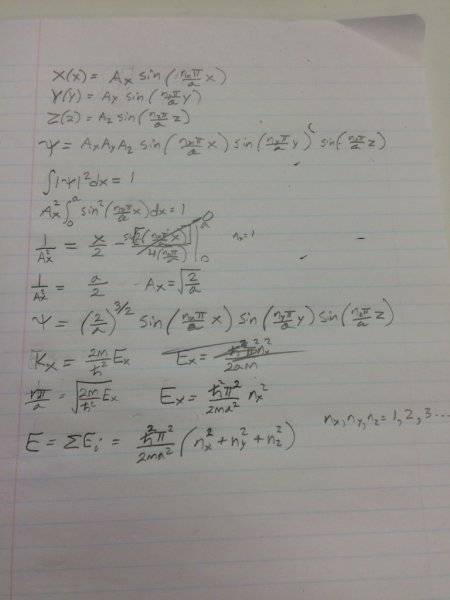 X(x) = Aₓ sin(nₓπ/a x)
Y(y) = Aᵧ sin(nᵧπ/a y)
Z(z) = A_z sin(n_zπ/a z)
Ψ = AₓAᵧA_z sin(nₓπ/a x) sin(nᵧπ/a y) sin(n_zπ/a z)
∫|Ψ|²dx = 1
Aₓ² ∫₀ᵃ sin²(nₓπ/a x)dx = 1
1/Aₓ² = x/2 - sin(2(nₓπ/a x))/4(nₓπ/a) |₀ᵃ 0 nₓ=1
1/Aₓ² = a/2 Aₓ = √(2/a)
Ψ = (2/a)^3/2 sin(nₓπ/a x) sin(nᵧπ/a y) sin(n_zπ/a z)
Kₓ = 2m/ħ² Eₓ Eₓ = ħ²π²nₓ²/2am
nπ/a = √(2m/ħ² Eₓ) Eₓ = ħ²π²/2ma² nₓ²
nₓ,nᵧ,n_z = 1,2,3...
E = ΣEᵢ = ħ²π²/2ma² (nₓ² + nᵧ² + n_z²)